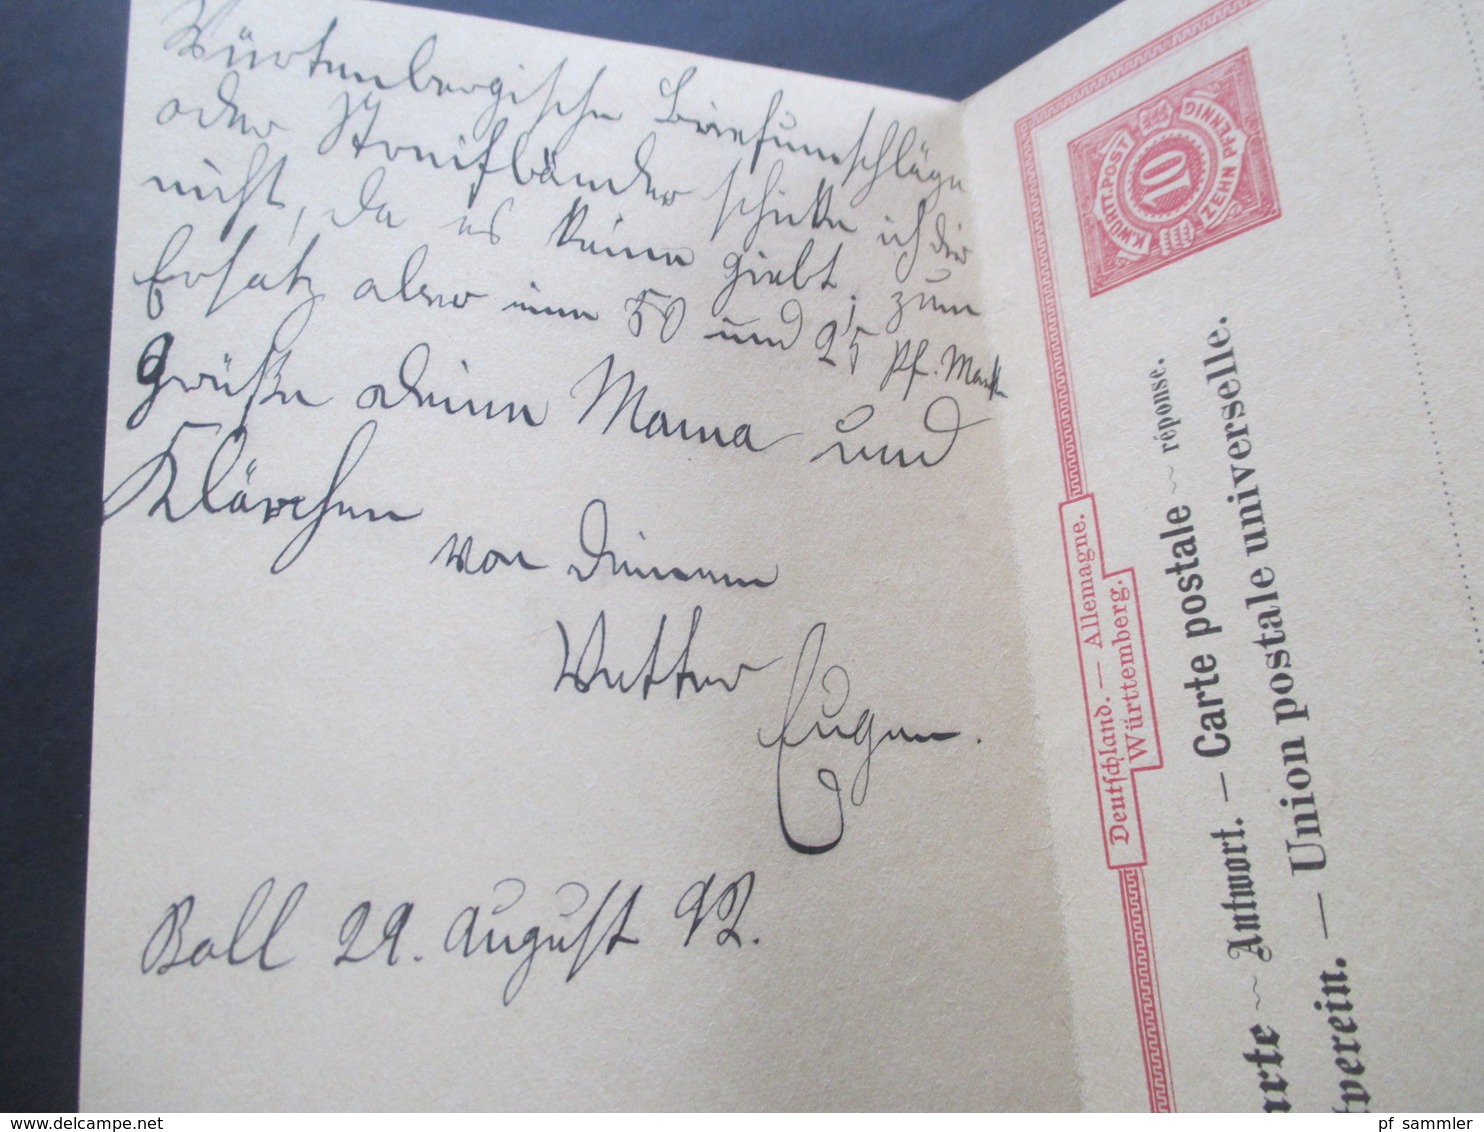 Würtenbergische Briefumschläge
oder Streifbänder schicke ich dir
nicht, da es keine giebt, zum
Ersatz aber eine 50 und 25 Pf. Marke
Grüße Deine Mama und
Klärchen
von Deinem
Vetter
Eugen.
Boll 29. August 92.
K. WÜRTT. POST
10
ZEHN PFENNIG
Deutschland. — Allemagne.
Württemberg.
arte ~ Antwort. — Carte postale ~ réponse.
tverein. — Union postale universelle.
pf_sammler